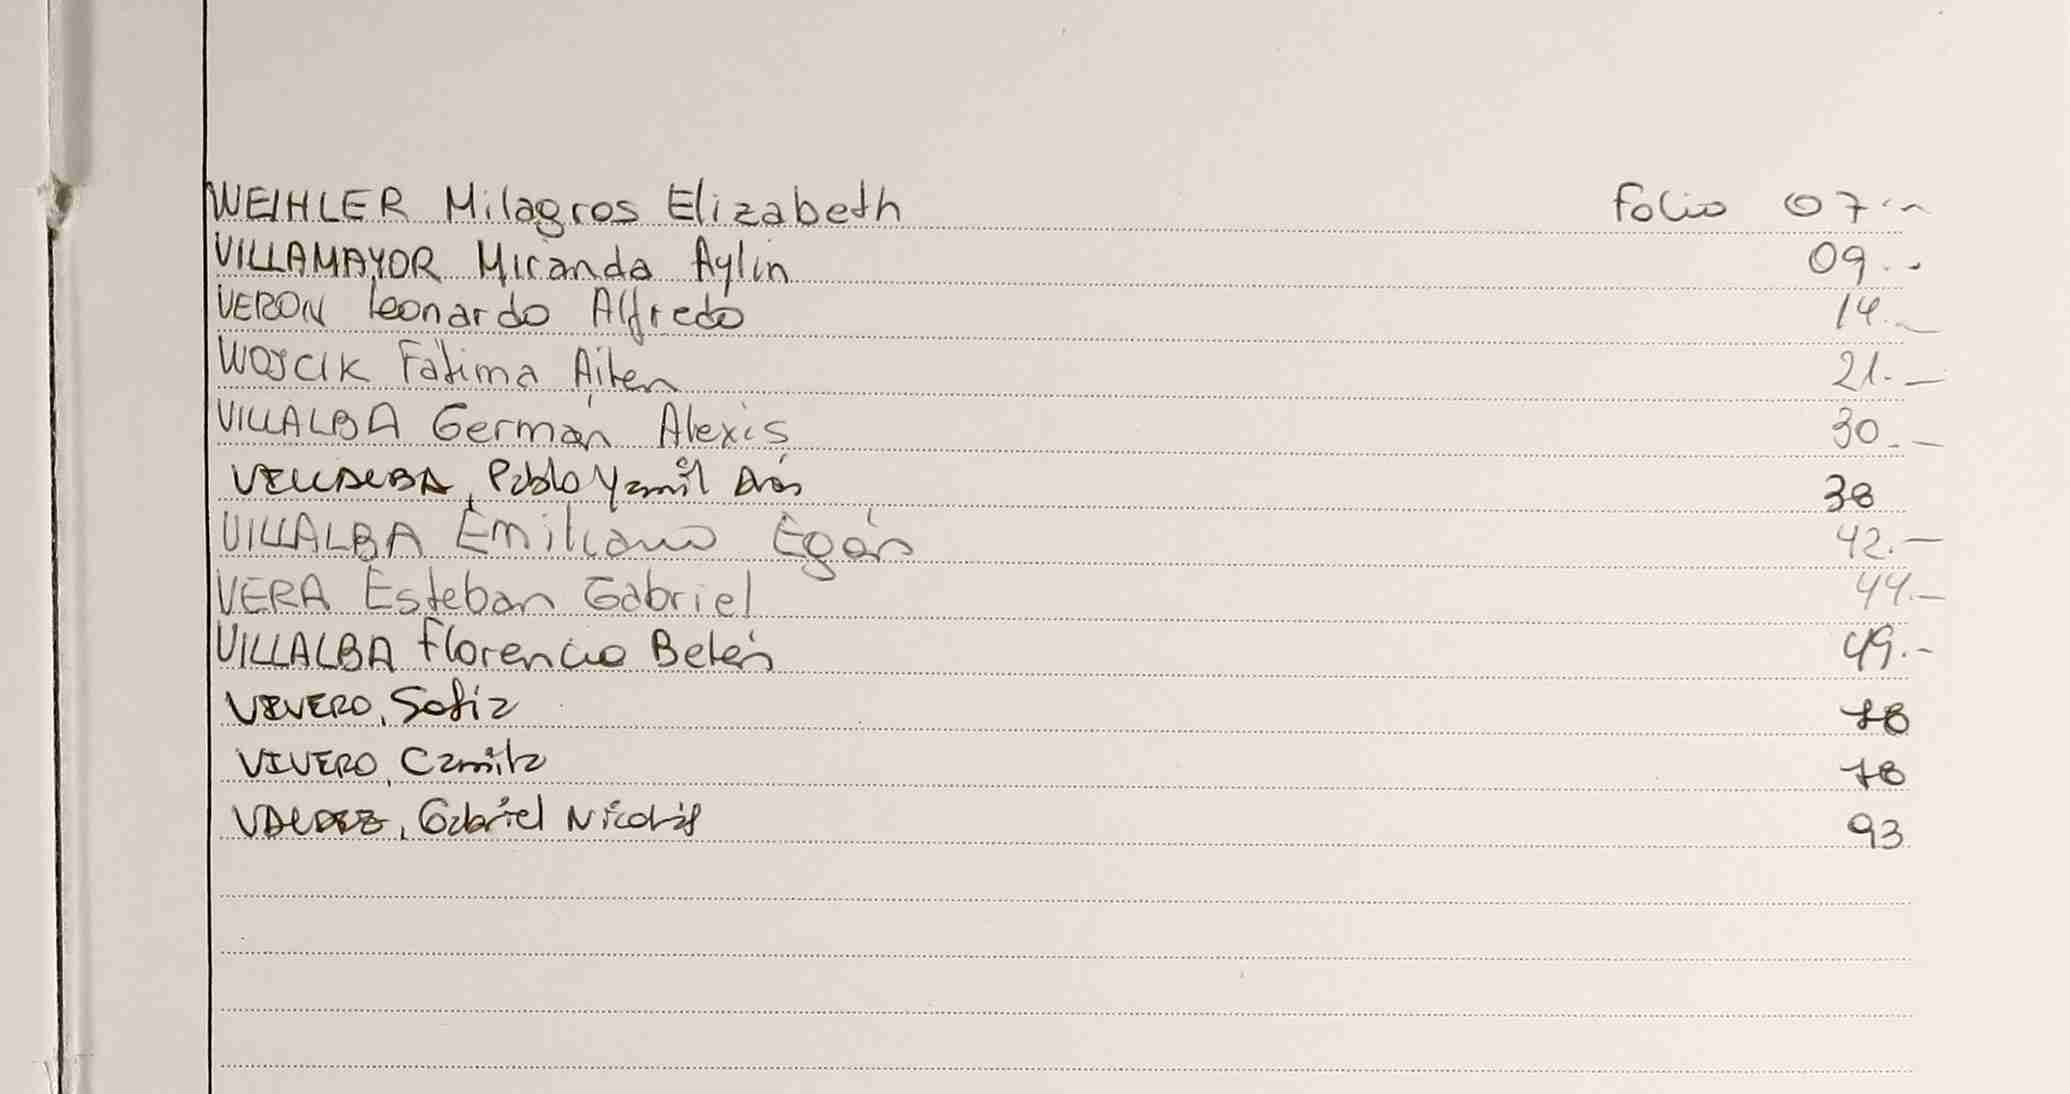 WEIHLER Milagros Elizabeth folio 07.-
VILLAMAYOR Miranda Aylin 09.-
VERON Leonardo Alfredo 14.-
WOJCIK Fátima Ailen 21.-
VILLALBA Germán Alexis 30.-
VILLALBA, Pablo Yamil 38
VILLALBA Emiliano Egán 42.-
VERA Esteban Gabriel 44.-
VILLALBA Florencia Belén 49.-
VIVERO, Sofia 78
VIVERO, Camila 78
VALDEZ, Gabriel Nicolás 93